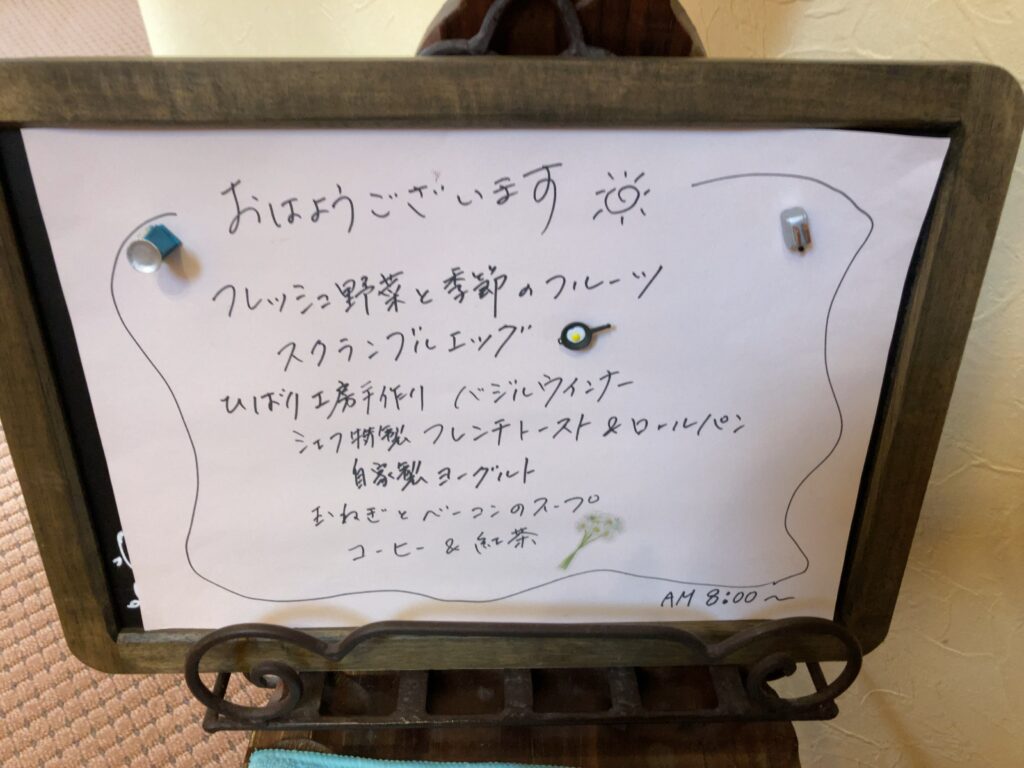 おはようございます
フレッシュ野菜と季節のフルーツ
スクランブルエッグ
ひばり工房手作り バジルウインナー
シェフ特製 フレンチトースト & ロールパン
自家製ヨーグルト
玉ねぎとベーコンのスープ
コーヒー & 紅茶
AM 8:00～